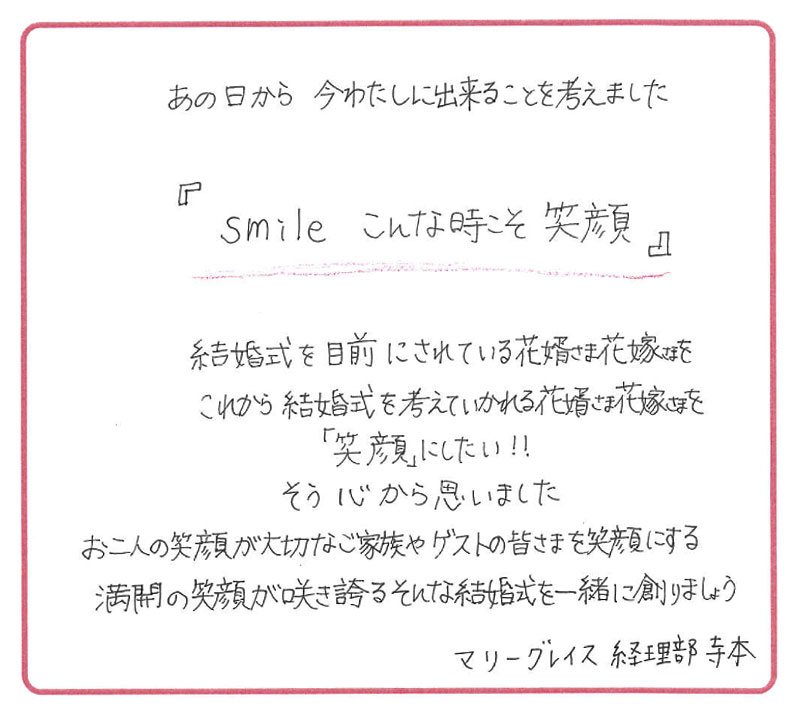 あの日から 今わたしに出来ることを考えました
『smile こんな時こそ 笑顔』
結婚式を目前にされている花婿さま花嫁さまを
これから結婚式を考えていかれる花婿さま花嫁さまを
「笑顔」にしたい!!
そう心から思いました
お二人の笑顔が大切なご家族やゲストの皆さまを笑顔にする
満開の笑顔が咲き誇るそんな結婚式を一緒に創りましょう
マリーグレイス 経理部 寺本